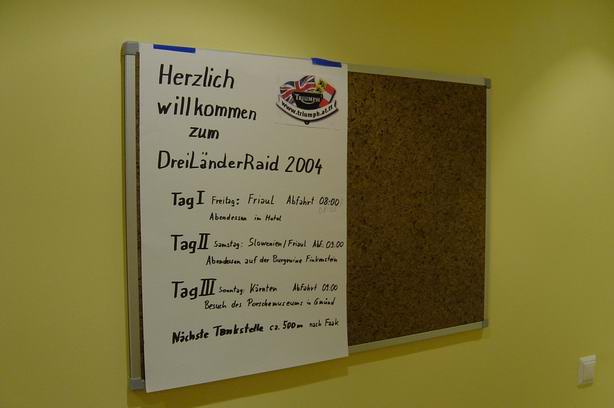 Herzlich
willkommen
zum
DreiLänderRaid 2004
TRIUMPH
www.triumph.at.tf
Tag I Freitag: Friaul Abfahrt 08:00
Abendessen im Hotel
Tag II Samstag: Slowenien/Friaul Abf. 09.00
Abendessen auf der Burgruine Finkenstein
Tag III Sonntag: Kärnten Abfahrt 09.00
Besuch des Porschemuseums in Gmünd
Nächste Tankstelle ca. 500m nach Faak